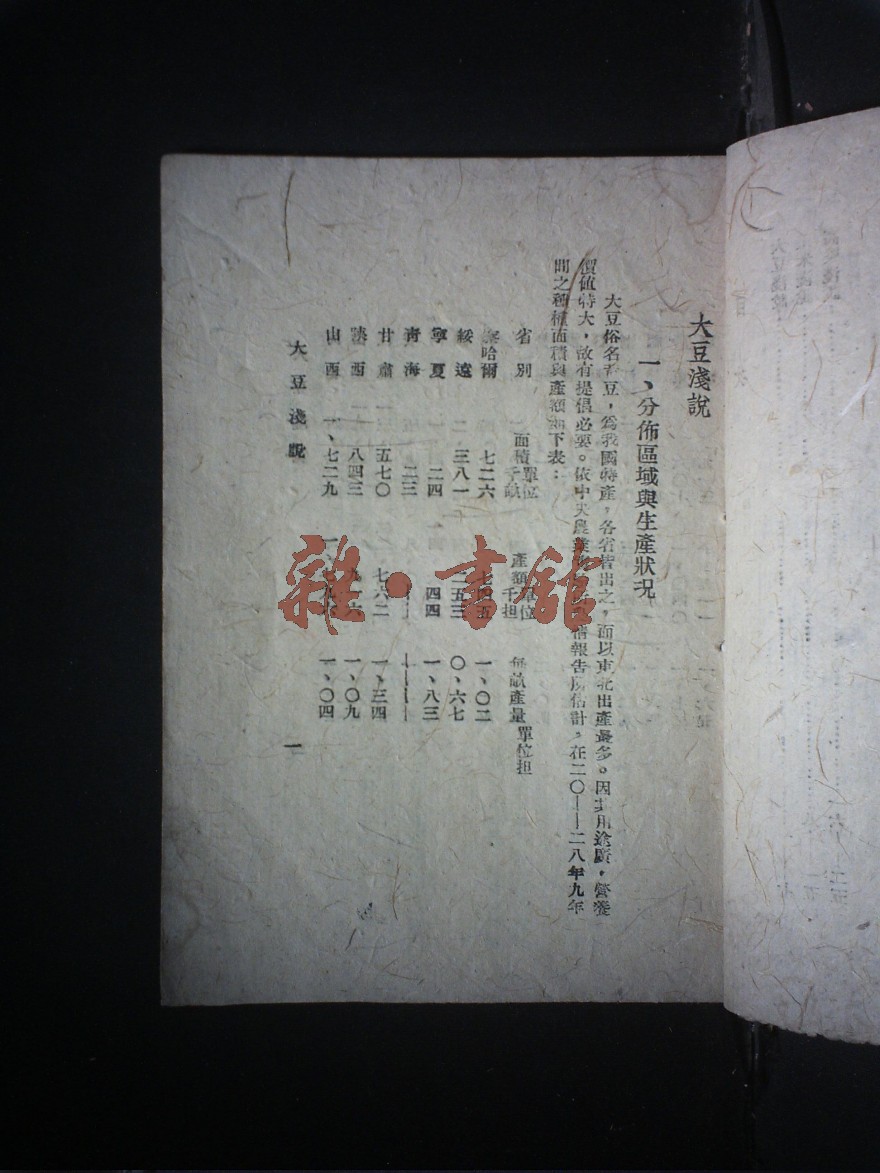 大豆淺說
一、分佈區域與生產狀况
大豆俗名黃豆,爲我國特產,各省皆出之,而以東北出產最多。因其用途廣,營養
價値特大,故有提倡必要。依中央農業 情報告所估計,在二〇——二八年九年
間之種植面積與產額如下表:
省別 面積單位千畝 產額單位千担 每畝產量單位担
察哈爾 七二六 七四五 一、〇二
綏遠 二、三八一 二五三 〇、六七
寧夏 二四 四四 一、八三
靑海 二三 ——
甘肅 五七〇 七六二 一、三四
陝西 八四三 九 六 一、〇九
山西 一、七二九 一、七 一、〇四
大豆淺說
一
雜·書館